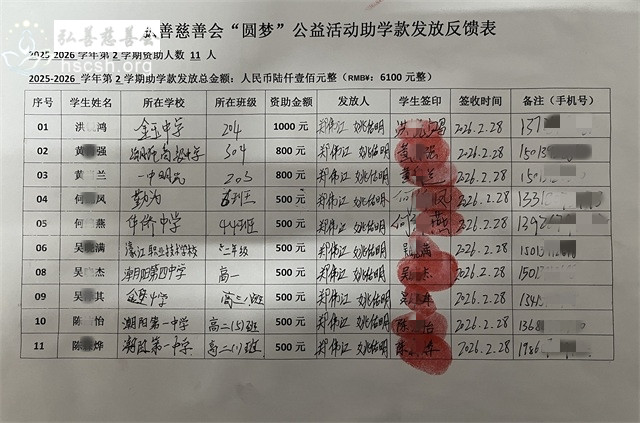 弘善慈善会
hscsh.org
弘善慈善会“圆梦”公益活动助学款发放反馈表
2025-2026 学年第2学期资助人数 11 人
2025-2026 学年第2学期助学款发放总金额:人民币陆仟壹佰元整(RMB¥:6100 元整)
序号 学生姓名 所在学校 所在班级 资助金额 发放人 学生签印 签收时间 备注(手机号)
01 洪 鸿 金玉中学 204 1000 元 郑伟江 姚佑明 洪 鸿 2026.2.28 137
02 黄 强 304 800 元 郑伟江 姚佑明 黄 强 2026.2.28 15013
03 黄 兰 一中明光 203 800 元 郑伟江 姚佑明 黄 兰 2026.2.28 1501
04 何 凤 勤为 500 元 郑伟江 姚佑明 何 凤 2026.2.28 1331
05 何 燕 华侨中学 44班 500 元 郑伟江 姚佑明 何 燕 2026.2.28 1392
06 吴 满 濠江职业技术学校 二年级 500 元 郑伟江 姚佑明 吴 满 2026.2.28 1501
08 吴 杰 潮阳第四中学 高一 500 元 郑伟江 姚佑明 吴 杰 2026.2.28 1501
09 吴 其 中学 500 元 郑伟江 姚佑明 吴 2026.2.28 134
10 陈 怡 潮阳第一中学 高二(5)班 500 元 郑伟江 姚佑明 陈 怡 2026.2.28 1368
11 陈 烨 潮阳第一中学 高二(1)班 500 元 郑伟江 姚佑明 陈 2026.2.28 1986